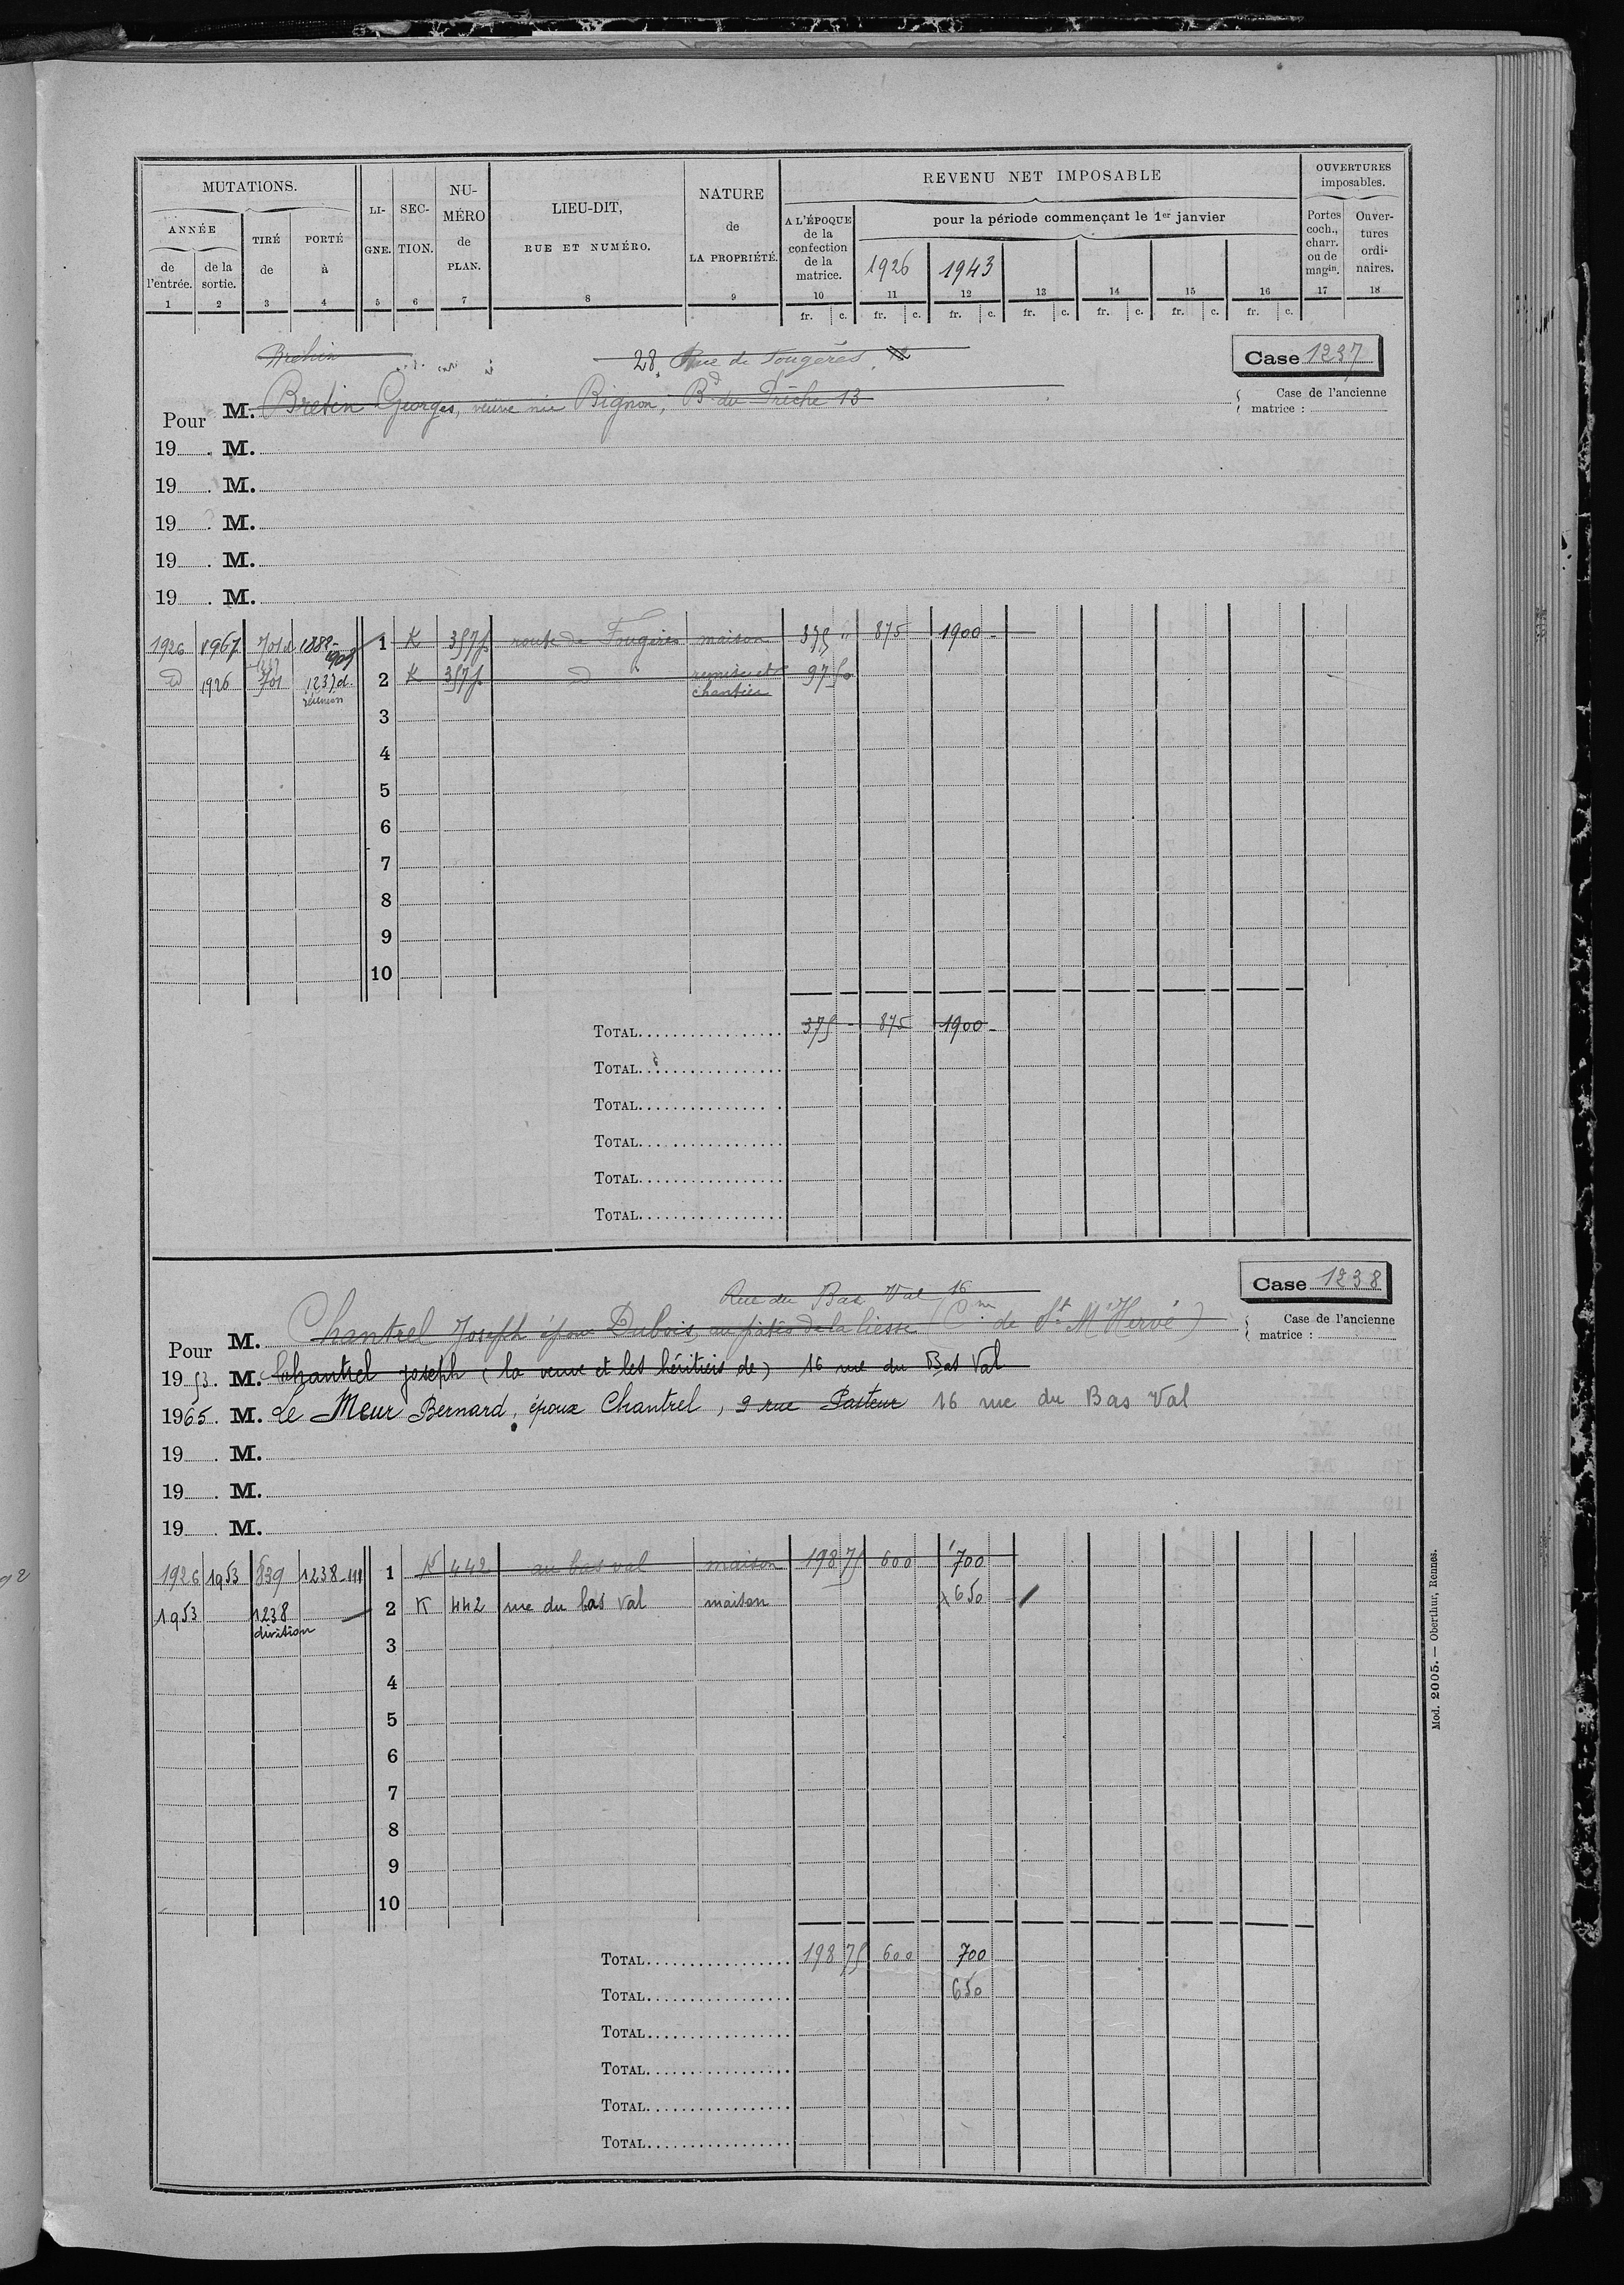 MUTATIONS.
ANNÉE
de l'entrée.
de la sortie.
TIRÉ de
PORTÉ à
LI-GNE.
SEC-TION.
NU-MÉRO de PLAN.
LIEU-DIT, RUE ET NUMÉRO.
NATURE de LA PROPRIÉTÉ.
REVENU NET IMPOSABLE
A L'ÉPOQUE de la confection de la matrice.
pour la période commençant le 1er janvier
1926 1943
OUVERTURES imposables.
Portes coch., charr. ou de magin.
Ouver-tures ordi-naires.
1 2 3 4 5 6 7 8 9 10 11 12 13 14 15 16 17 18
fr. c. fr. c. fr. c. fr. c. fr. c. fr. c. fr. c.
28 Rue de Fougères
Case 1237
Pour M. Bretin Georges, veuve née Bignon, Bd du Prêche 13
Case de l'ancienne matrice :
19 . M.
19 . M.
19 . M.
19 . M.
19 . M.
1926 1967 1 K 357p route de Fougères maison 375 " 875 1900 -
d° 1926 701 1237 d. réunion 2 K 357p d° remise et chantier 97 50
3
4
5
6
7
8
9
10
TOTAL 375 - 875 1900 -
TOTAL
TOTAL
TOTAL
TOTAL
TOTAL
Rue du Bas Val 16
Case 1238
Pour M. Chantrel Joseph époux Dubois, au pâtis de la liesse (Cne de St M'Hervé)
Case de l'ancienne matrice :
1953. M. Chantrel Joseph (la veuve et les héritiers de) 16 rue du Bas Val
1965. M. Le Meur Bernard, époux Chantrel, 9 rue Pasteur 16 rue du Bas Val
19 . M.
19 . M.
19 . M.
1926 1953 839 1238 1 K 442 au bas val maison 198 75 600 700
1953 1238 division 2 K 442 rue du bas Val maison 650
3
4
5
6
7
8
9
10
TOTAL 198 75 600 700
TOTAL 650
TOTAL
TOTAL
TOTAL
TOTAL
Mod. 2005. — Oberthur, Rennes.